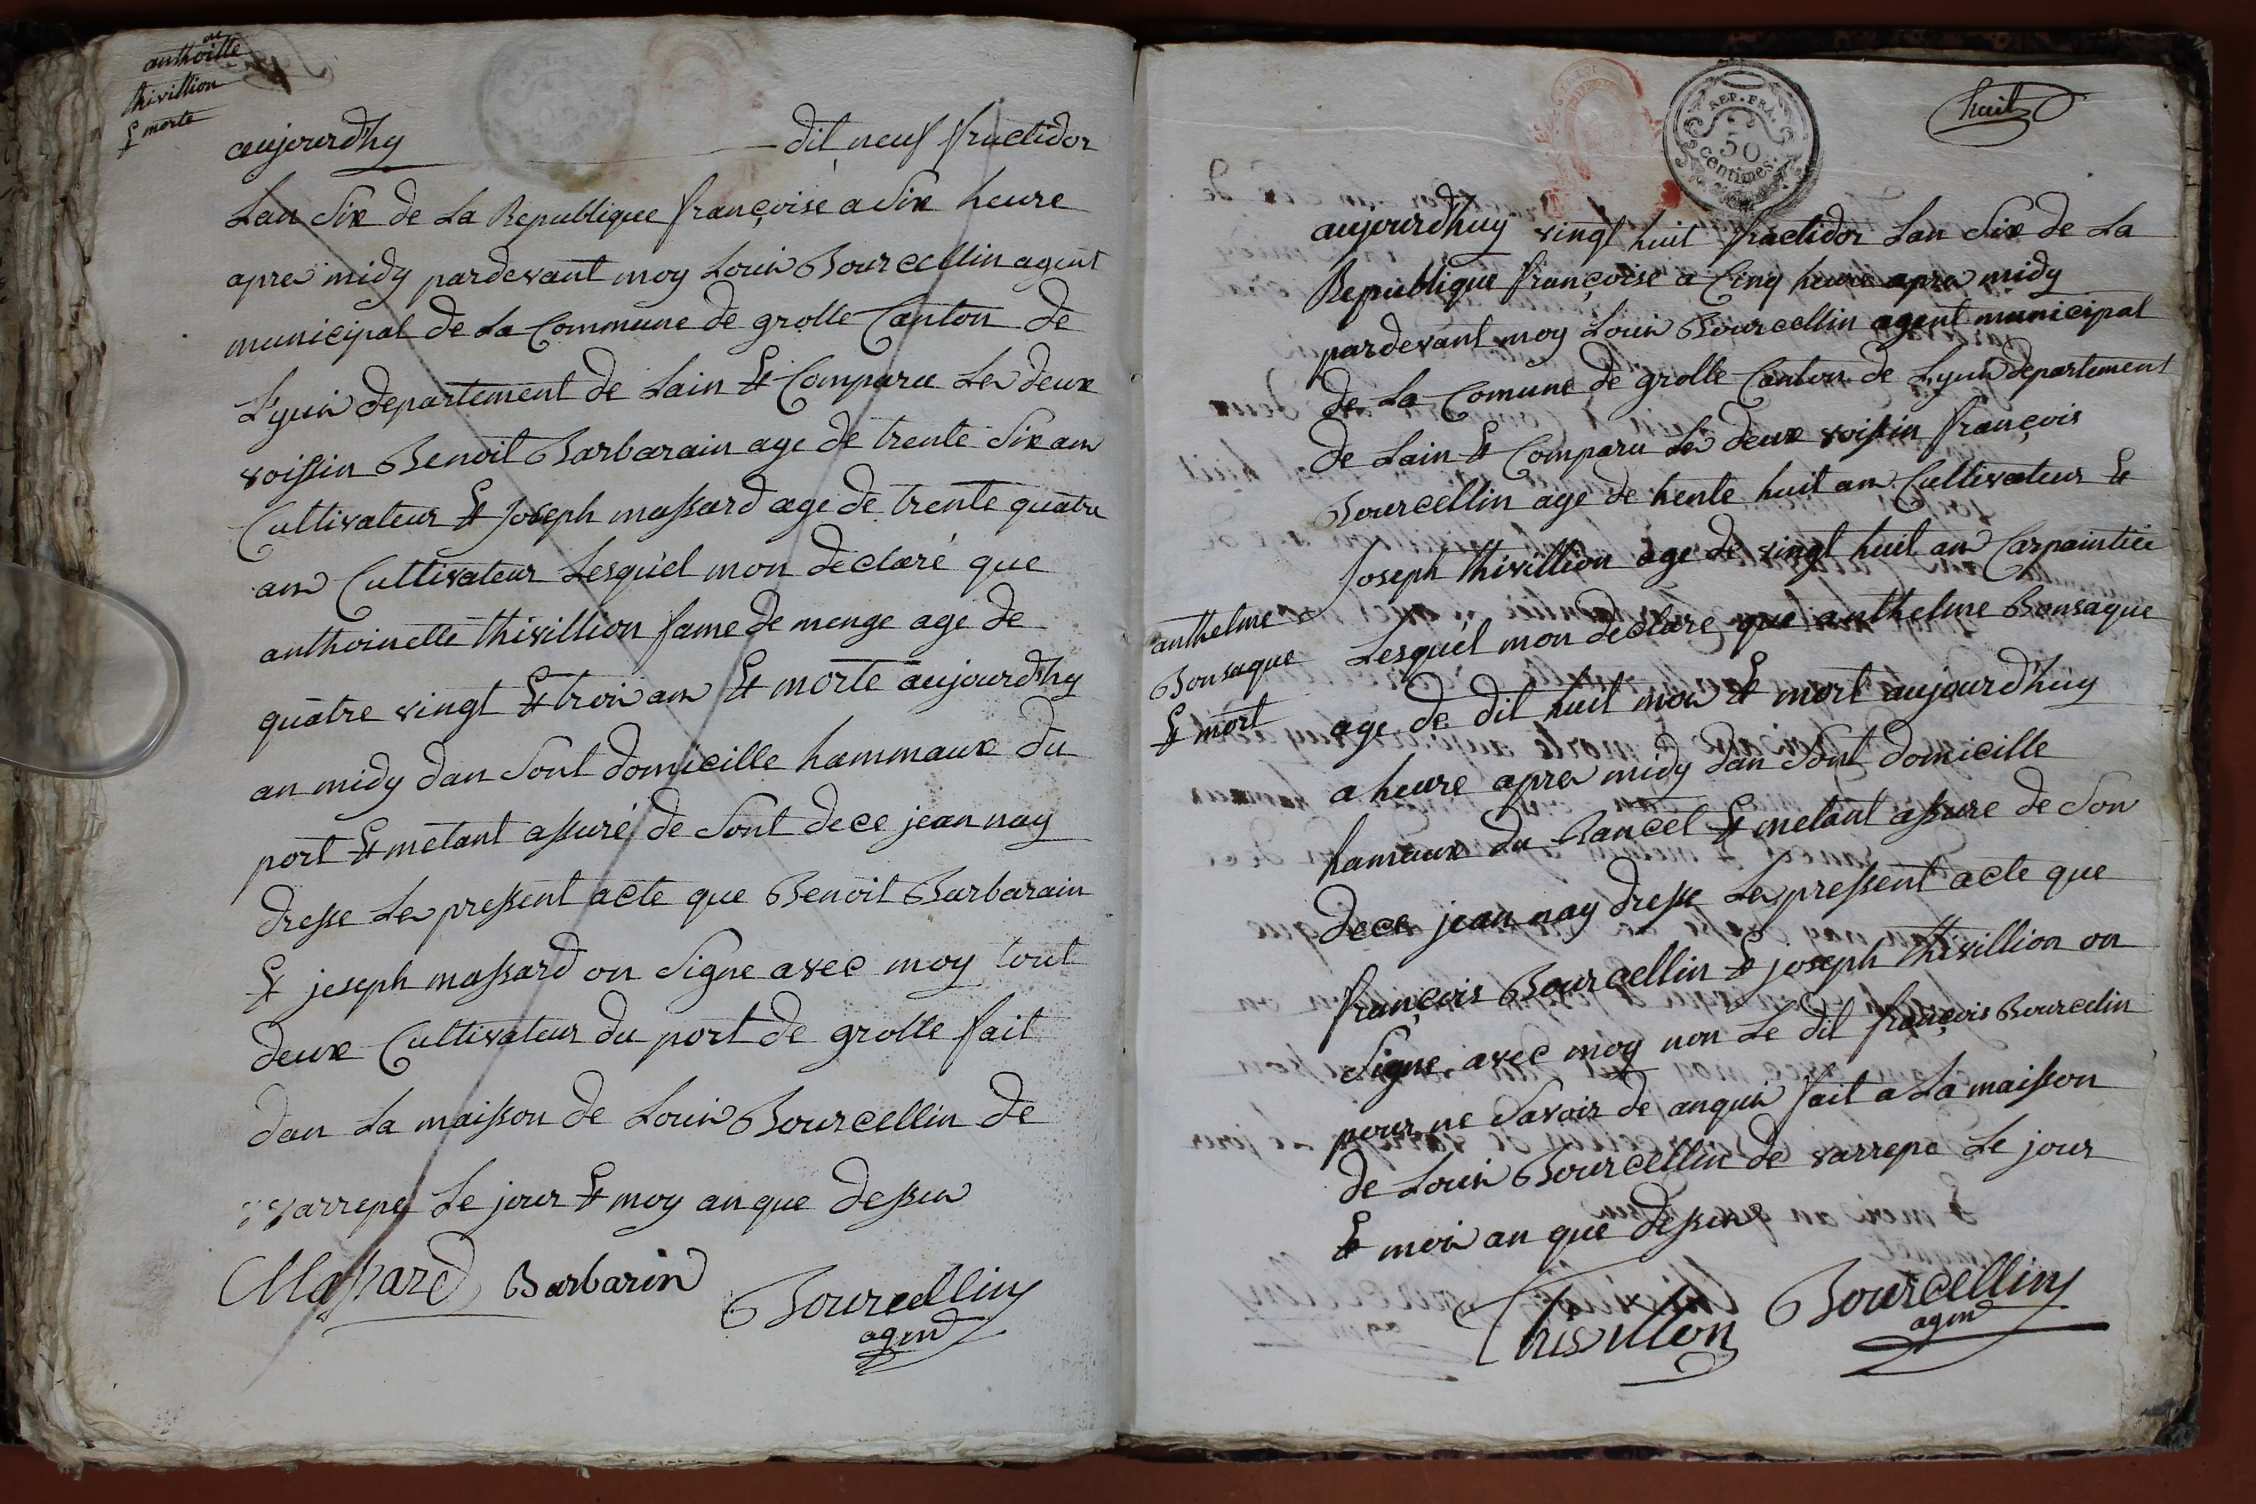 anthoille
thivillion
Et morte
aujourdhy dit neuf fructidor
Lan Six de La Republique françoise a Six heure
apres midy pardevant moy Louis Bourcellin agent
municipal de La Commune de grolle Canton de
Lyuis departement de Lain Et Comparu Les deux
voissin Benoit Barbarain age de trente Six ans
Cultivateur Et Joseph massard age de trente quatre
ans Cultivateur Lesquel mon declaré que
anthoinelle thivillion fame de menge age de
quatre vingt Et trois ans Et morte aujourdhy
an midy dan Sont domicille hammaux du
port Et metant assuré de Sont dece jean nay
dresse Les pressent acte que Benoit Barbarain
Et joseph massard on Signe avec moy tout
deux Cultivateur du port de grolle fait
dan La maisson de Louis Bourcellin de
varrepe Le jour Et moy an que dessus
Massard Barbarin Bourcellin
agend
huit
REP. FRA.
50
centimes.
aujourdhuy vingt huit fructidor Lan Six de La
Republique françoise a Cinq heure apres midy
pardevant moy Louis Bourcellin agent municipal
de La Comune de grolle Canton de Lyuis departement
de Lain Et Comparu Les deux voissin françois
Bourcellin age de trente huit ans Cultivateur Et
Joseph thivillion age de vingt huit ans Carpaintier
Lesquel mon declaré que anthelme Bonsaque
anthelme
Bonsaque
Et mort
age de dit huit mois Et mort aujourdhuy
a heure apres midy dan Sont domicille
hameaux du Bancel Et metant assure de Son
dece jean nay dresse Les pressent acte que
françois Bourcellin Et joseph thivillion on
Signe avec moy non Le dit françois Bourcelin
pour ne Savoir de anquis fait a La maisson
de Louis Bourcellin de varrepe Le jour
Et mois an que dessus
Thisvillon Bourcellin
agend